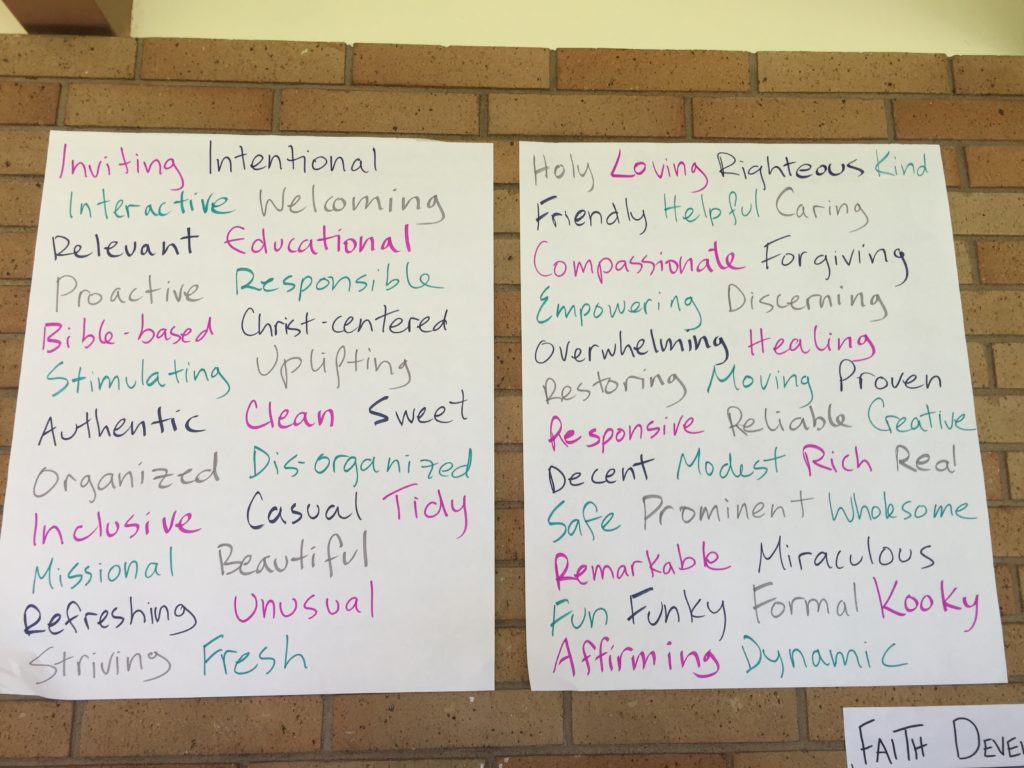 Inviting Intentional
Interactive Welcoming
Relevant Educational
Proactive Responsible
Bible-based Christ-centered
Stimulating Uplifting
Authentic Clean Sweet
Organized Dis-organized
Inclusive Casual Tidy
Missional Beautiful
Refreshing Unusual
Striving Fresh
Holy Loving Righteous Kind
Friendly Helpful Caring
Compassionate Forgiving
Empowering Discerning
Overwhelming Healing
Restoring Moving Proven
Responsive Reliable Creative
Decent Modest Rich Real
Safe Prominent Wholesome
Remarkable Miraculous
Fun Funky Formal Kooky
Affirming Dynamic
FAITH